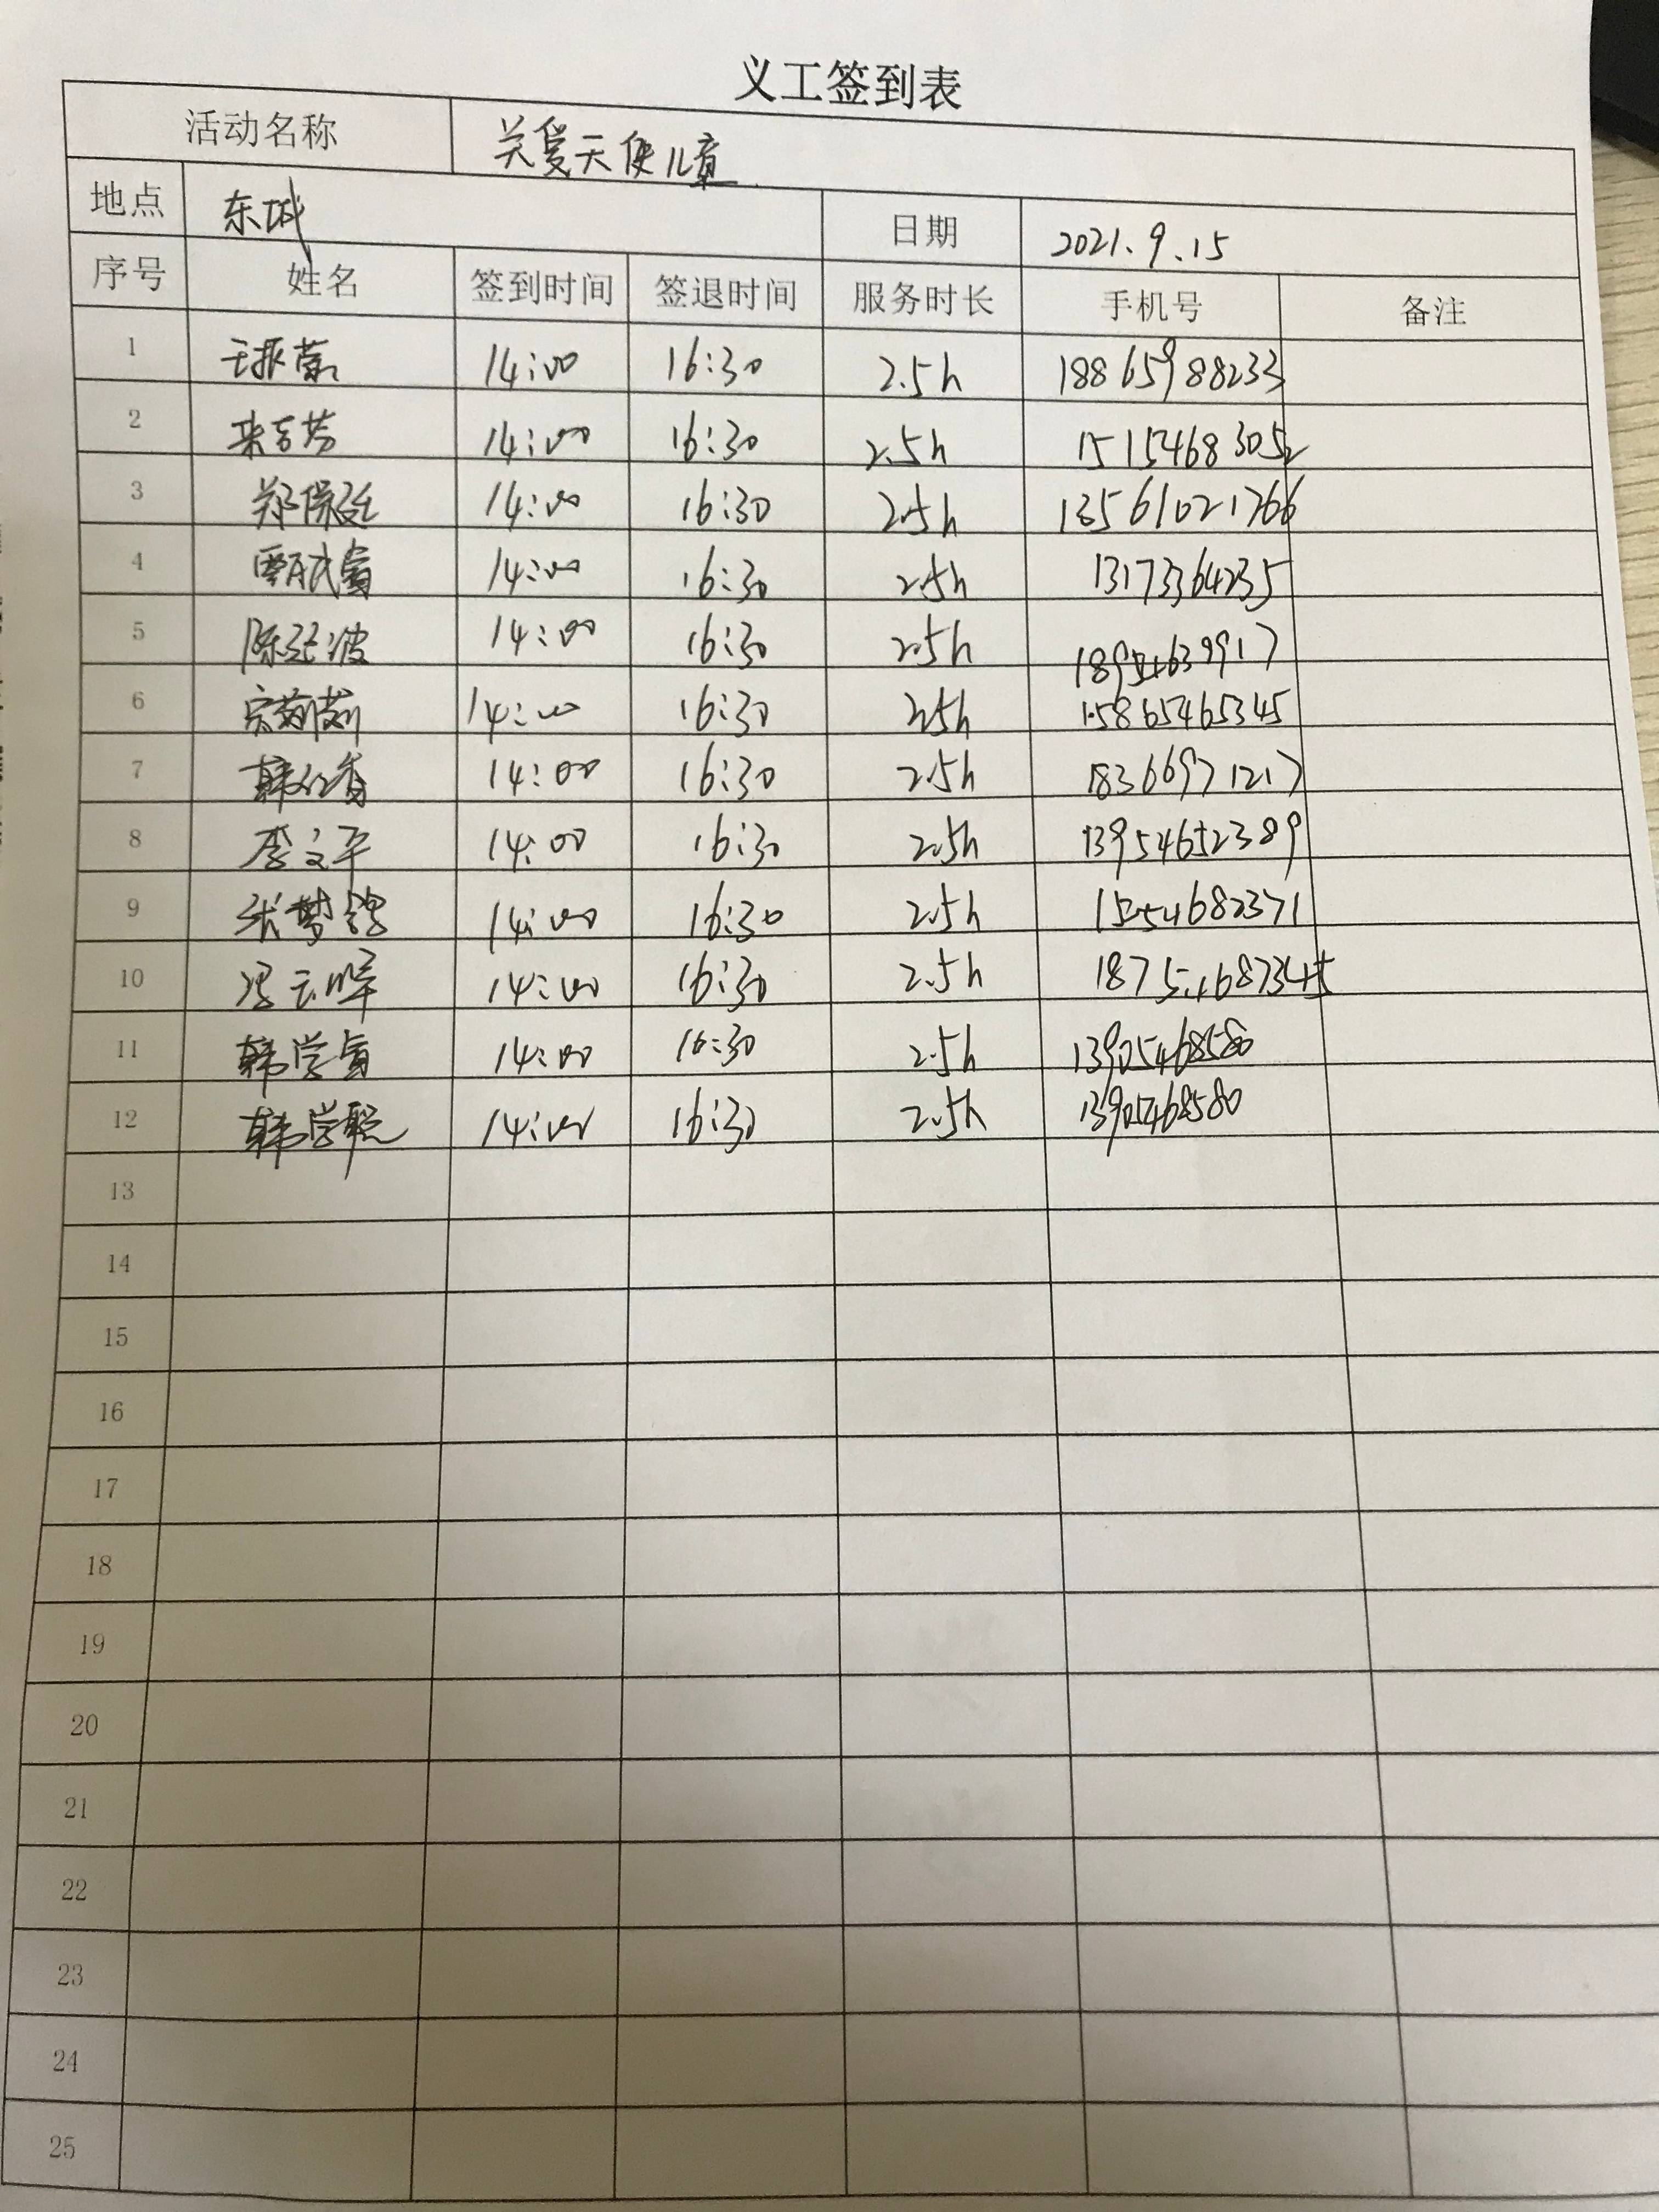 义工签到表
活动名称 关爱天使儿童
地点 东城 日期 2021.9.15
序号 姓名 签到时间 签退时间 服务时长 手机号 备注
1 14:00 16:30 2.5h 18865988233
2 14:00 16:30 2.5h 15154683052
3 郑保廷 14:00 16:30 2.5h 13561021766
4 14:00 16:30 2.5h 13173364235
5 14:00 16:30 2.5h
6 宋莉莉 14:00 16:30 2.5h 15865465345
7 14:00 16:30 2.5h 18366971217
8 李文平 14:00 16:30 2.5h 13954652389
9 张梦 14:00 16:30 2.5h 15254682371
10 冯云 14:00 16:30 2.5h 18754687345
11 韩学 14:00 16:30 2.5h 13905468580
12 韩学聪 14:00 16:30 2.5h 13905468580
13
14
15
16
17
18
19
20
21
22
23
24
25